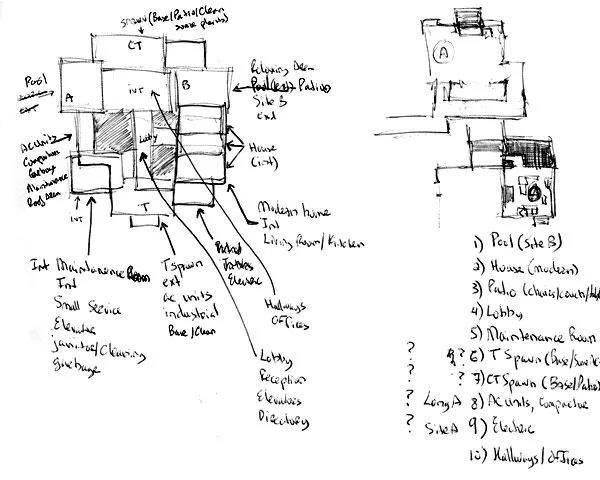 spawn (Base/Patio/Clean
some plants)
CT
Pool
A
int
B
Patio
Site B
Ext
Lobby
House
(int)
AC Units
Garbage
Maintenance
INT
T
Modern home
Int
Living Room/Kitchen
Int Maintenance Room
Int
Small Service
Elevator
janitor/Cleaning
garbage
T Spawn
ext
ac units
industrial
Base/Clean
Electric
Hallways
Offices
Lobby
Reception
Elevators
Directory
A
A
1) Pool (Site B)
2) House (modern)
3) Patio
4) Lobby
5) Maintenance Room
? ? 6) T Spawn
? ? 7) CT Spawn (Base/Patio)
? Long A 8) AC Units, Compactor
? Site A 9) Electric
10) Hallways/Offices